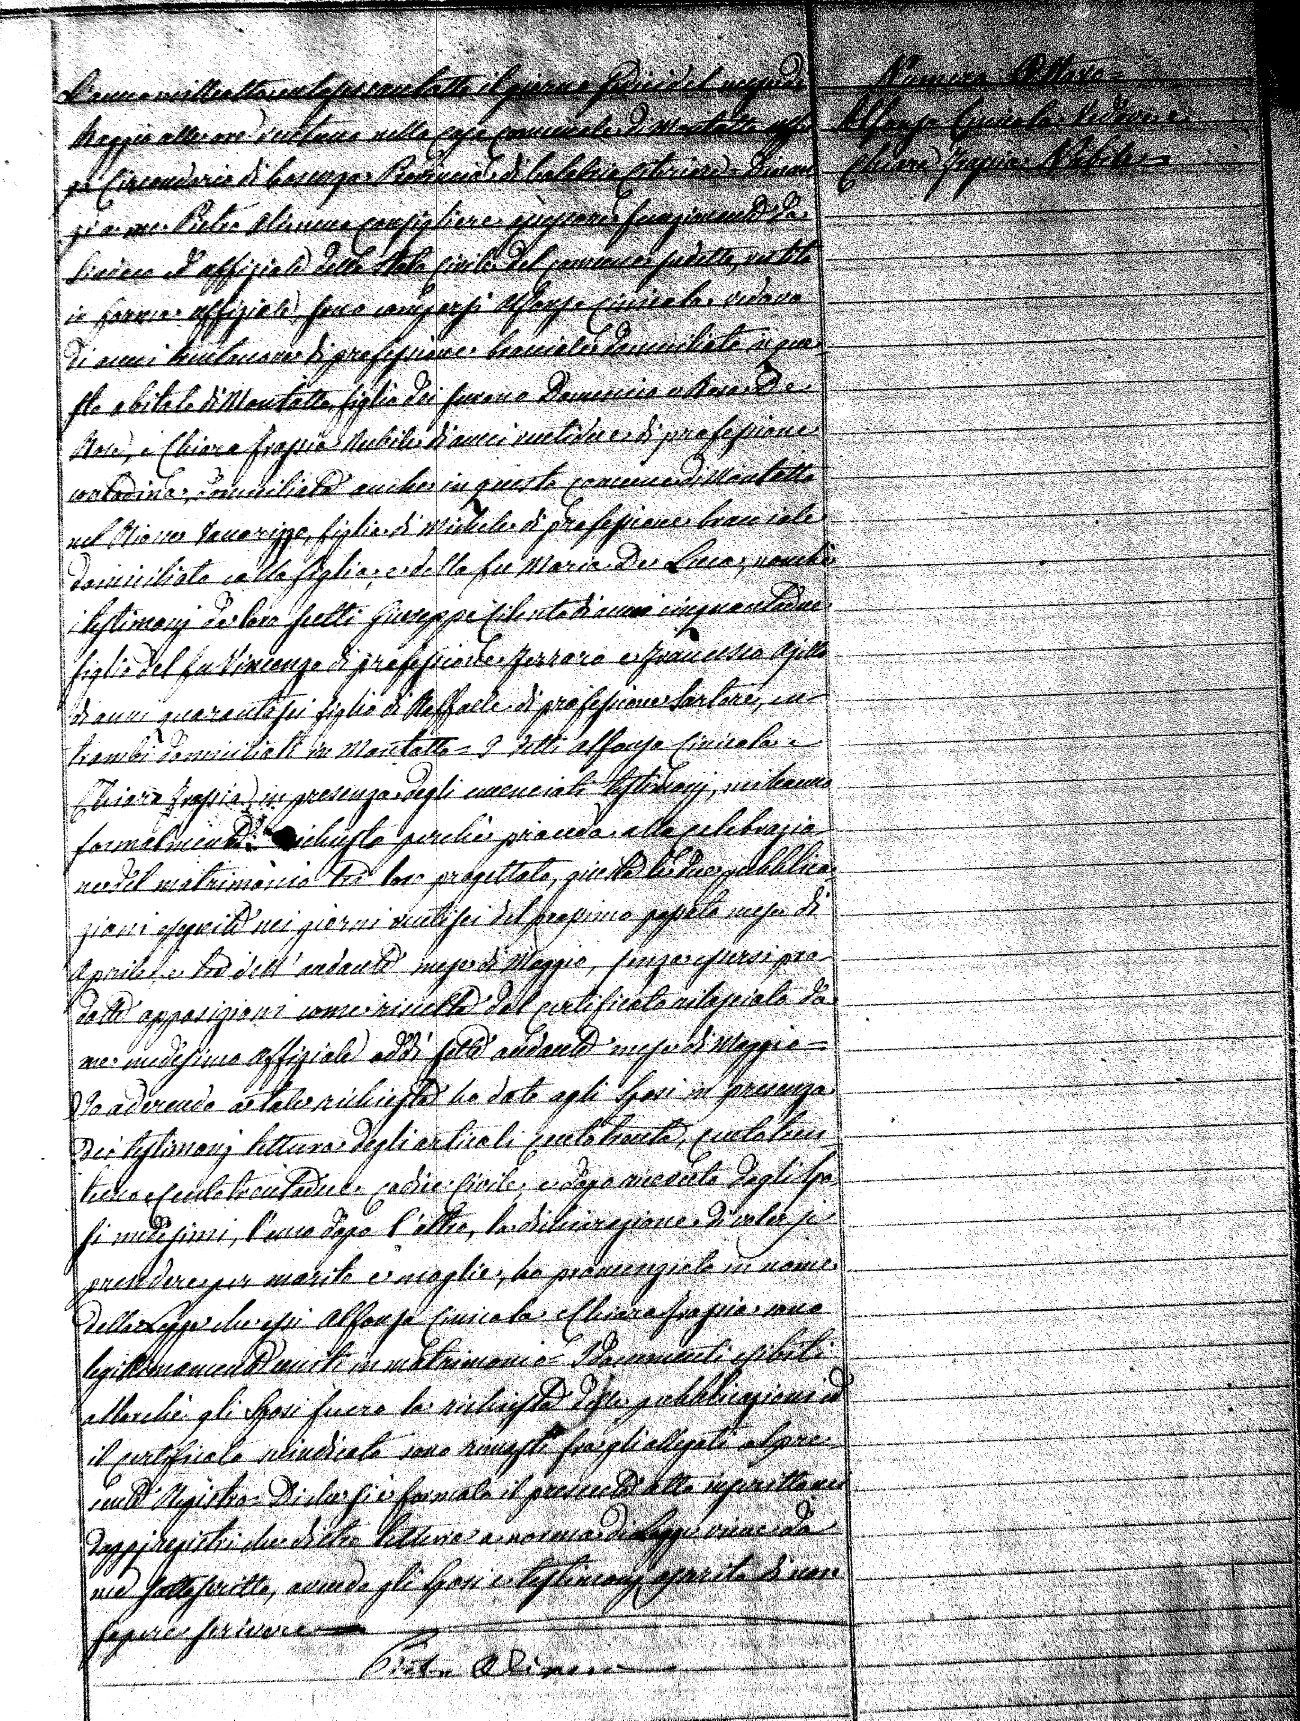 L'anno mille ottocento sessantotto il giorno sedici del mese di
Maggio alle ore ventuno nella casa comunale di Montalto Uffu
go Circondario di Cosenza Provincia di Calabria Citeriore = Dinan
zi a me Pietro Alimena Consigliere funzionante da
Sindaco ed Uffiziale dello Stato Civile del comune sudetto, vestito
in forma uffiziale sono comparsi Alfonso Cinicola vedovo
di anni trentanove di professione bracciale domiciliato in que
sto abitato di Montalto figlio dei furono Domenico e Rosa De
Rose, e Chiara Frassia Nubile di anni ventidue di professione
contadina, domiciliata anche in questo comune di Montalto
nel Rione figlia di Michele di professione bracciale
domiciliato colla figlia, e della fu Maria De Luca, nonché
i testimonj da loro scelti Giuseppe Cilento di anni cinquantadue
figlio del fu Vincenzo di professione Ferraro e Francesco
di anni quarantasei figlio di Raffaele di professione Sartore, en
trambi domiciliati in Montalto = I detti Alfonso Cinicola e
Chiara Frassia, in presenza degli enunciati testimonj, mi hanno
formalmente richiesto perché proceda alla celebrazio
ne del matrimonio tra loro progettato, giusta le due pubblica
zioni eseguite nei giorni ventisei del prossimo passato mese di
Aprile e tre dell'andante mese di Maggio, senza essersi pro
dotte opposizioni come risulta dal certificato rilasciato da
me medesimo Uffiziale addì sette andante mese di Maggio =
Io aderendo a tale richiesta ho dato agli Sposi in presenza
dei testimonj lettura degli articoli centotrenta, centotren
tuno e centotrentadue codice Civile, e dopo ricevuta dagli Spo
si medesimi, l'uno dopo l'altro, la dichiarazione di volersi
prendere per marito e moglie, ho pronunziato in nome
della Legge che essi Alfonso Cinicola e Chiara Frassia sono
legittimamente uniti in matrimonio = I documenti esibiti
allorché gli Sposi fecero la richiesta delle pubblicazioni ed
il certificato suindicato sono rimasti fra gli allegati al pre
sente Registro = Di che si è formato il presente atto inscritto nei
doppj registri che dietro lettura a norma di Legge viene da
me sottoscritto, avendo gli Sposi e testimonj asserito di non
sapere scrivere
Pietro Alimena
Numero Ottavo =
Alfonso Cinicola Vedovo e
Chiara Frassia Nubile =